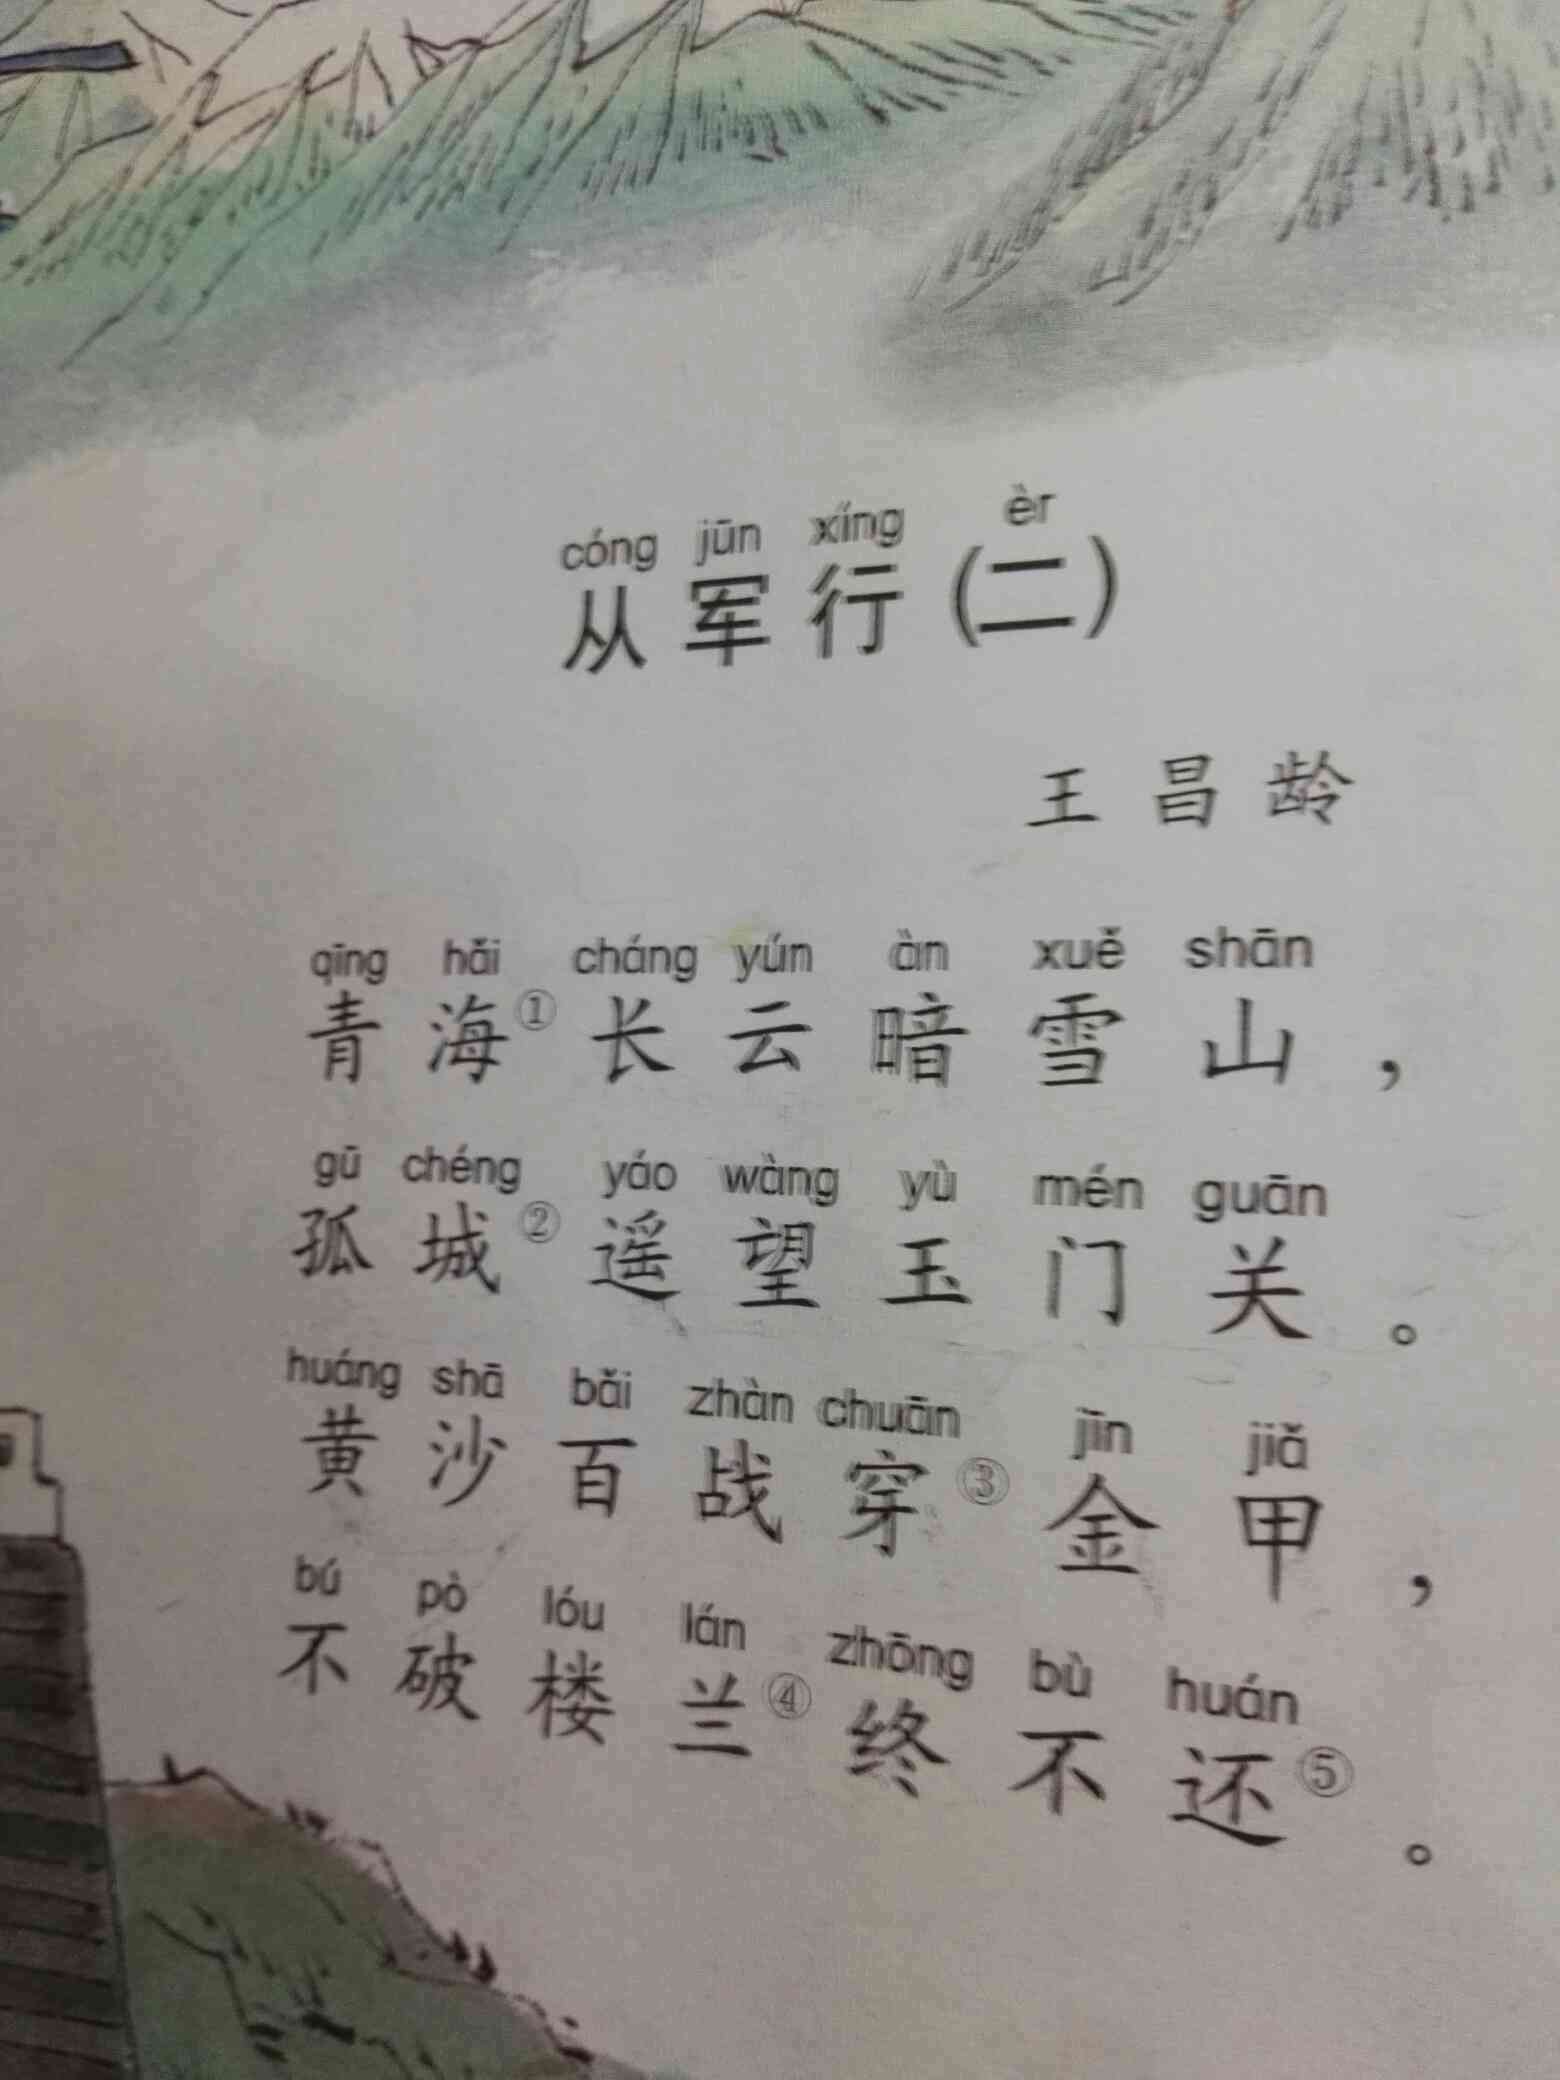 cóng jūn xíng èr
从军行(二)
王昌龄
qīng hǎi cháng yún àn xuě shān
青海①长云暗雪山，
gū chéng yáo wàng yù mén guān
孤城②遥望玉门关。
huáng shā bǎi zhàn chuān jīn jiǎ
黄沙百战穿③金甲，
bú pò lóu lán zhōng bù huán
不破楼兰④终不还⑤。